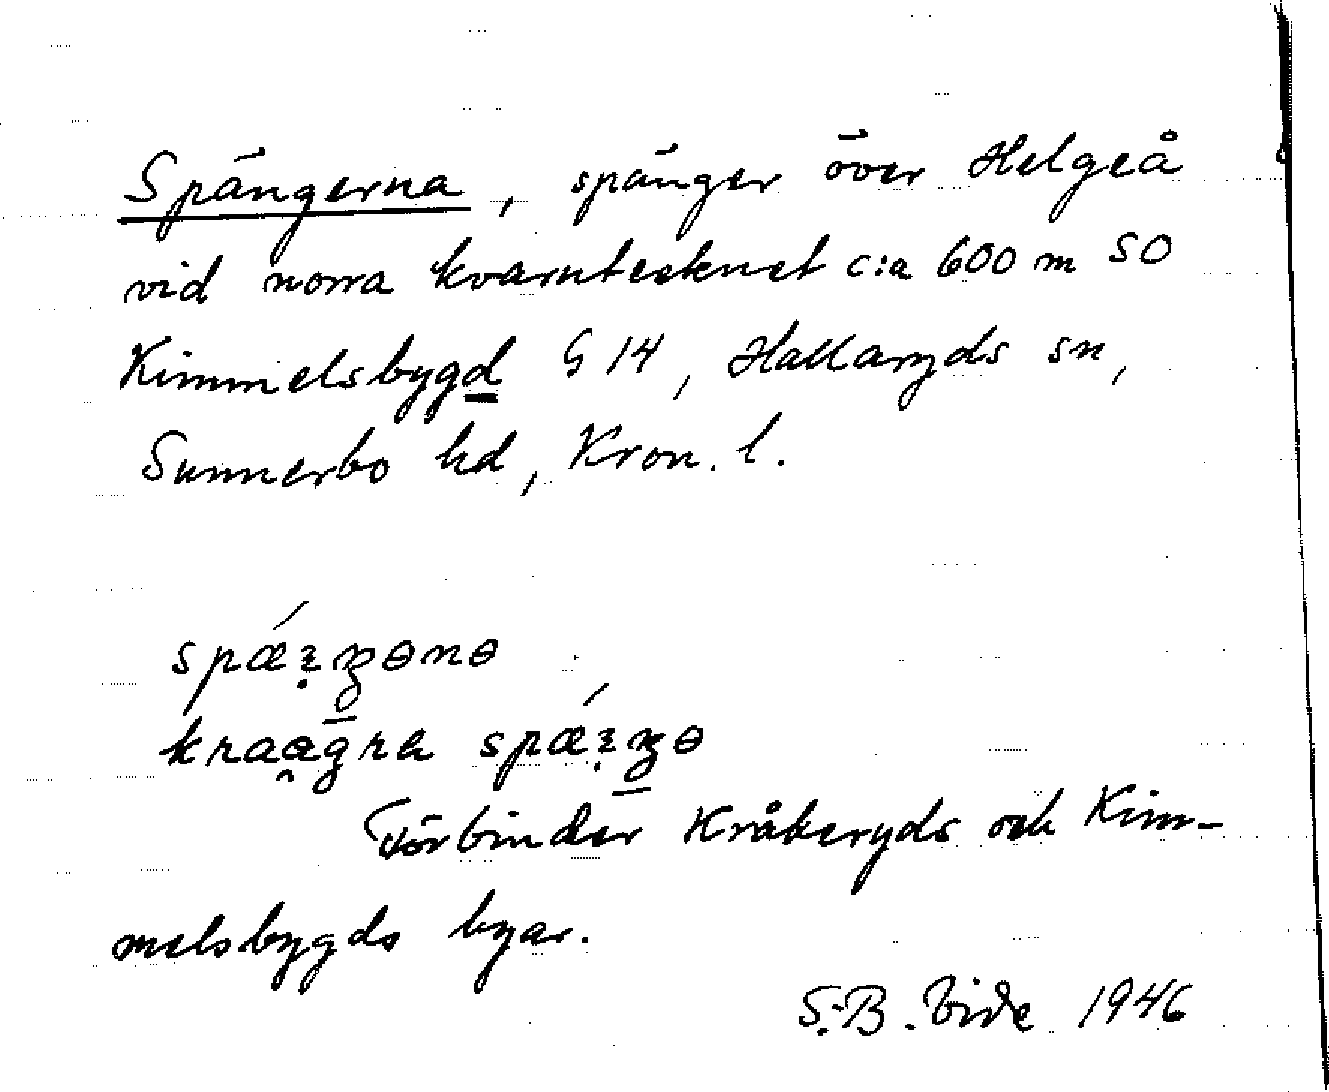 Spängerna, spänger över Helgeå
vid norra kvarntecknet c:a 600 m SO
Kimmelsbygd G 14, Hallaryds sn,
Sunnerbo hd, Kron. l.
Förbinder Kråkeryds och Kim-
melsbygds byar.
S.-B. Vide 1946